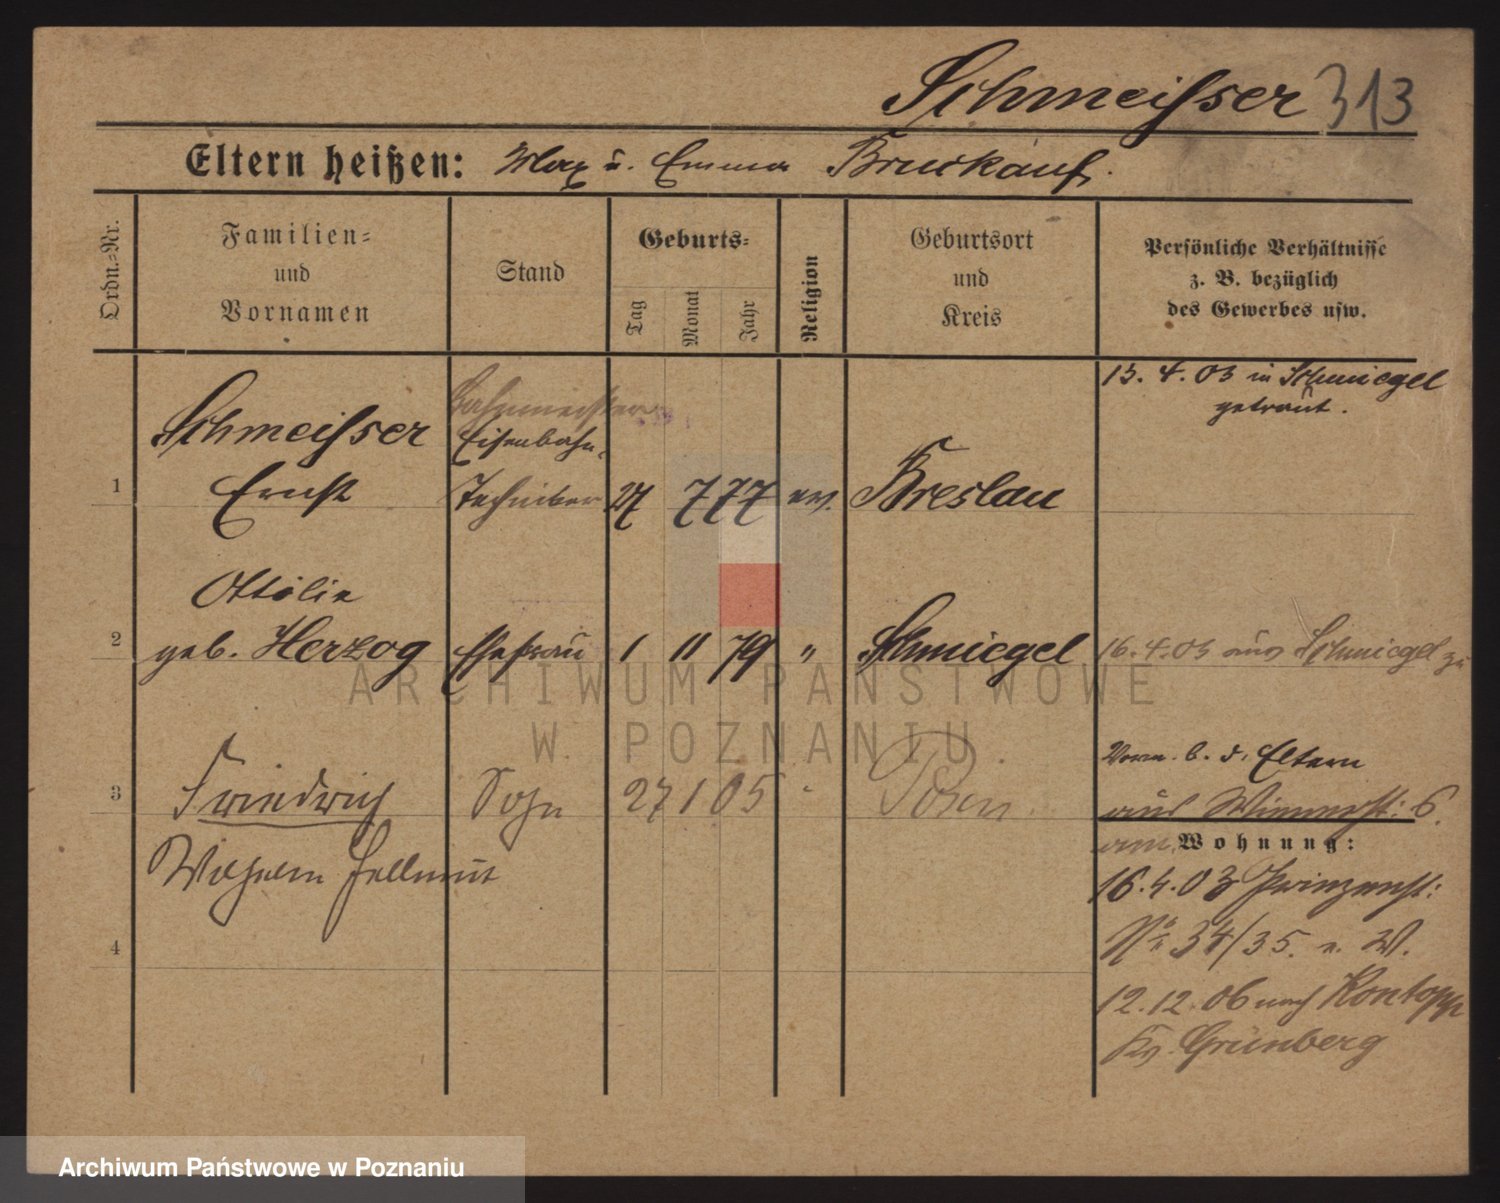 Schmeisser 313
Eltern heißen: Max u. Emma Bruckauf.
Ordn.=Nr.
Familien=
und
Vornamen
Stand
Geburts=
Tag
Monat
Jahr
Religion
Geburtsort
und
Kreis
Persönliche Verhältnisse
z. B. bezüglich
des Gewerbes usw.
15. 4. 03 in Schmiegel
getraut.
Bahnmeister
Schmeisser Eisenbahn-
1 Ernst Techniker 27 7 77 ev. Breslau
Ottilie
2 geb. Herzog Ehefrau 1 11 79 " Schmiegel 16.4.03 aus Schmiegel zu
Vorm. b. d. Eltern
3 Friedrich Sohn 27 1 05 " Posen
6.
Wohnung:
Wilhelm Hellmut 16.4.03 Prinzenst:
No 34/35. n. W.
4
12.12.06 nach Kontopp
Kr. Grünberg
ARCHIWUM PAŃSTWOWE
W POZNANIU
Archiwum Państwowe w Poznaniu